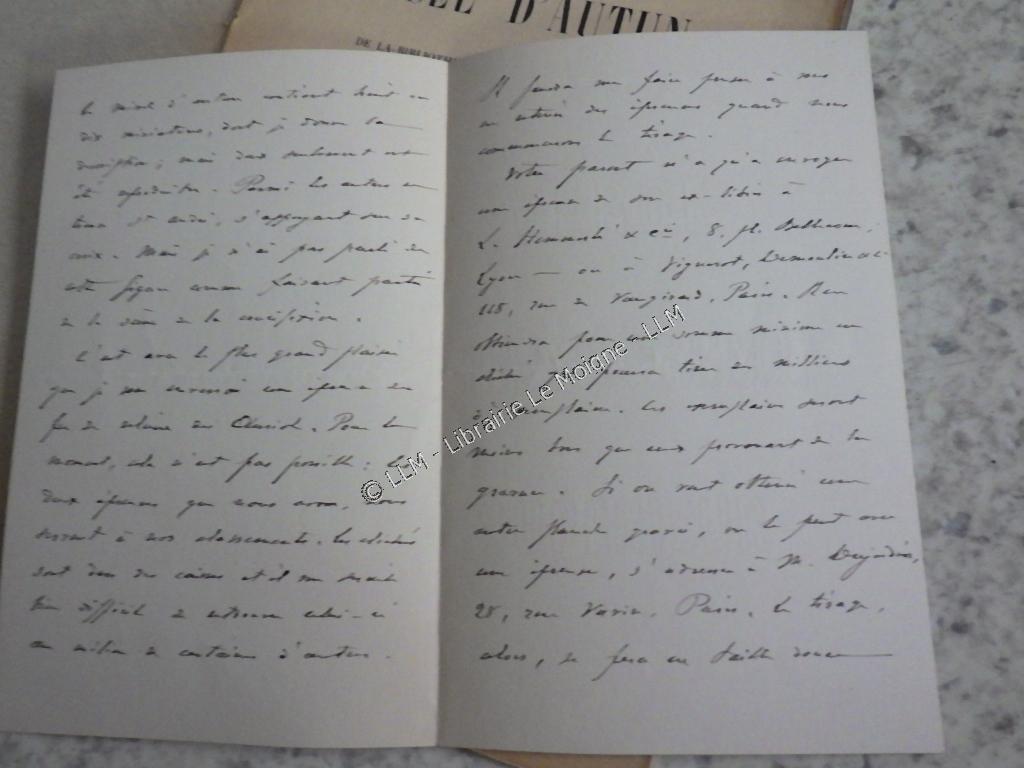 D'AUTUN
DE LA BIBLIOTH
Le missel d'autun contient huit ou
dix miniatures, dont je donne la
description ; mais deux seulement ont
été reproduites. Parmi les autres on
trouve St André, s'appuyant sur sa
croix. Mais je n'ai pas parlé de
cette figure comme faisant partie
de la scène de la crucifixion.
C'est avec le plus grand plaisir
que je vous enverrai une épreuve du
fer de reliure au Clavis. Pour le
moment, cela n'est pas possible : les
deux épreuves que nous avons, nous
servent à nos classements. Les clichés
sont dans des caisses et il me serait
bien difficile de retrouver celui-ci
au milieu de centaines d'autres.
Il faudra me faire penser à vous
en retirer des épreuves quand nous
commencerons le tirage.
Votre parent n'a qu'à envoyer
une épreuve de son ex-libris à
L. & Cie, 8, pl. Bellecour,
Lyon — ou à Vignerot, Demoulin et Cie
118, rue de Vaugirard, Paris. Il en
obtiendra pour une somme minime un
cliché pouvant tirer des milliers
d'exemplaires. Les exemplaires seront
moins bons que ceux provenant de la
gravure. Si on veut obtenir une
autre planche gravée, on le peut avec
une épreuve, s'adresser à M. Dujardin,
28, rue Vavin, Paris. Le tirage,
alors, se fera en taille douce
© LLM - Librairie Le Moigne - LLM